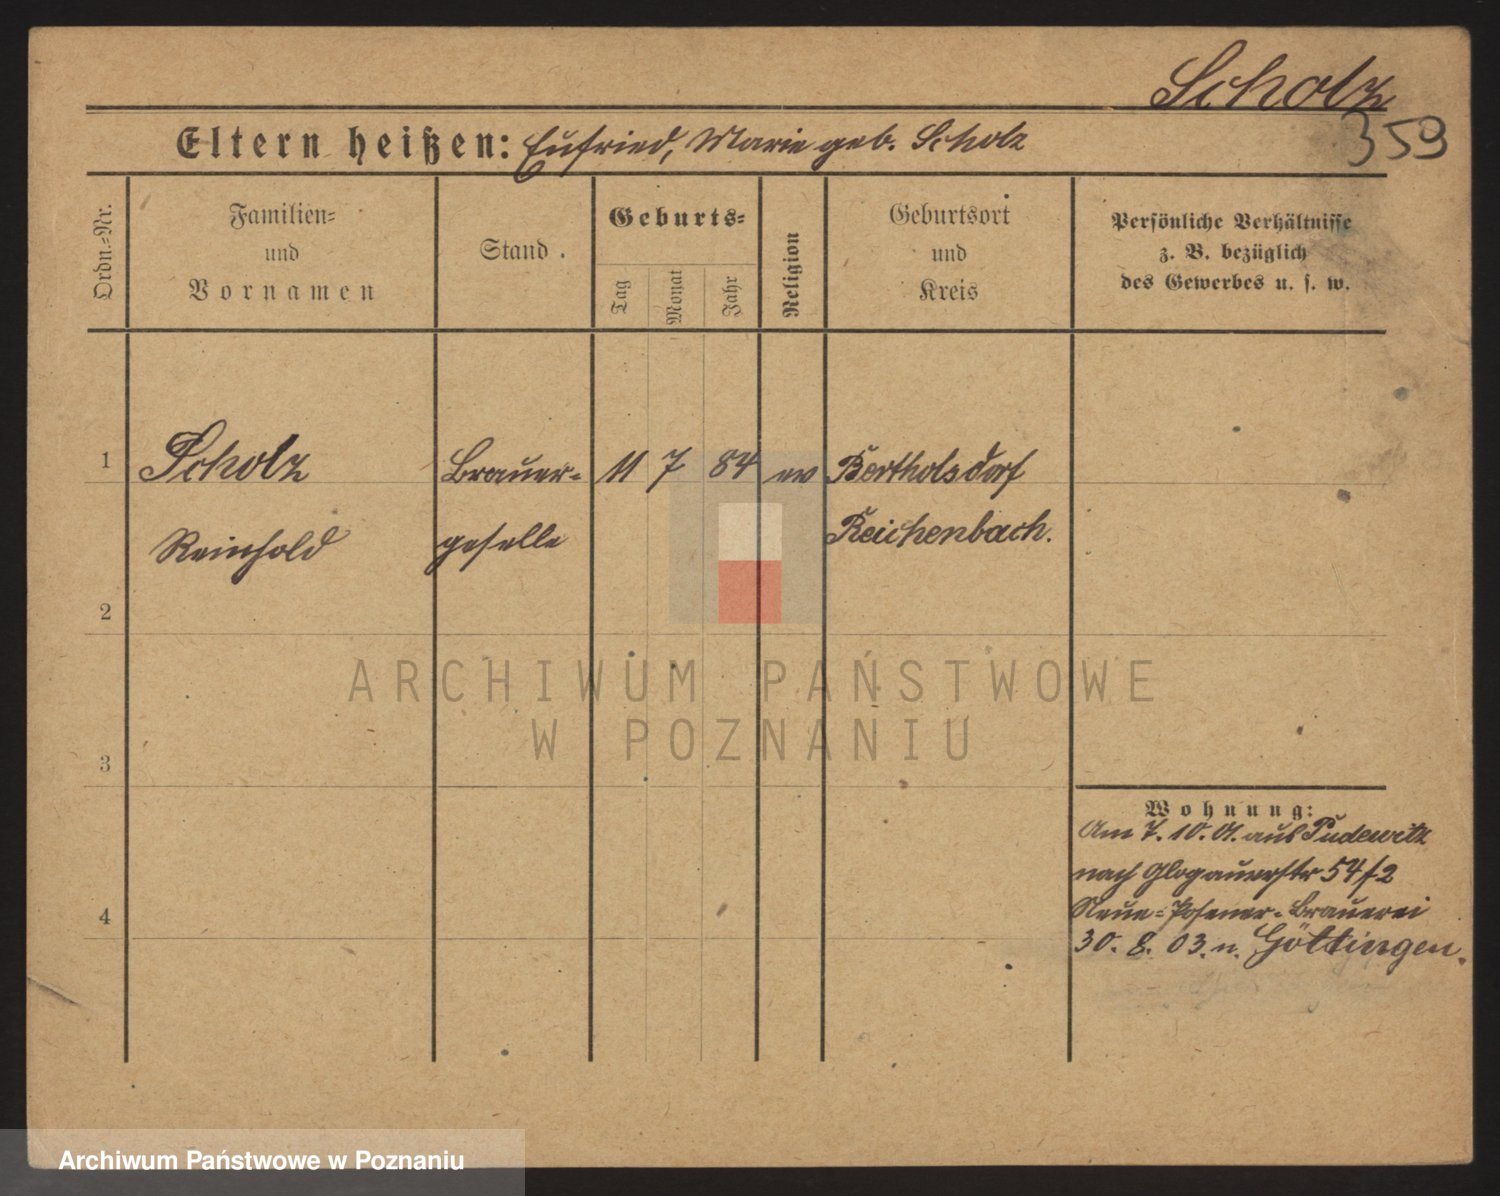 Scholz
359
Eltern heißen: Eufried, Marie geb. Scholz
Ordn.=Nr.
Familien=
und
Vornamen
Stand.
Geburts=
Tag
Monat
Jahr
Religion
Geburtsort
und
Kreis
Persönliche Verhältnisse
z. B. bezüglich
des Gewerbes u. s. w.
1 Scholz Brauer= 11 7 84 ev Bertholsdorf
Reinhold geselle Reichenbach.
2
ARCHIWUM PAŃSTWOWE
W POZNANIU
3
Wohnung:
Am 7. 10. 01. aus Pudewitz
nach Glogauerstr 54/2
4
Neue=Posener=Brauerei
30. 8. 03. n. Göttingen.
Archiwum Państwowe w Poznaniu